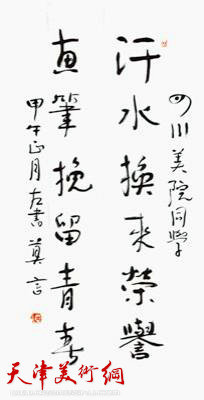 四川美院同学
汗水換来榮譽
畫筆挽留青春
甲午正月左書莫言
天津美術網